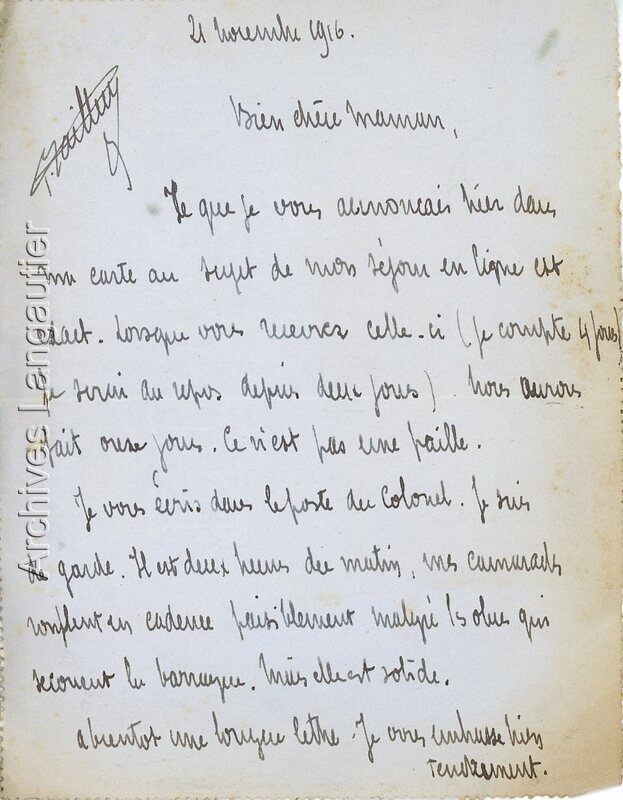 21 novembre 1916.
Bien chère Maman,
Ce que je vous annoncais hier dans
ma carte au sujet de mon séjour en ligne est
exact. Lorsque vous recevrez celle-ci (je compte 4 jours
je serai au repos depuis deux jours). Nous aurons
fait onze jours. Ce n'est pas une paille.
Je vous écris dans le poste du Colonel. Je suis
de garde. Il est deux heures du matin, mes camarades
ronflent en cadence paisiblement malgré les obus qui
secouent la barraque. Mais elle est solide.
a bientot une longue lettre. Je vous embrasse bien
tendrement.
Archives Langautier